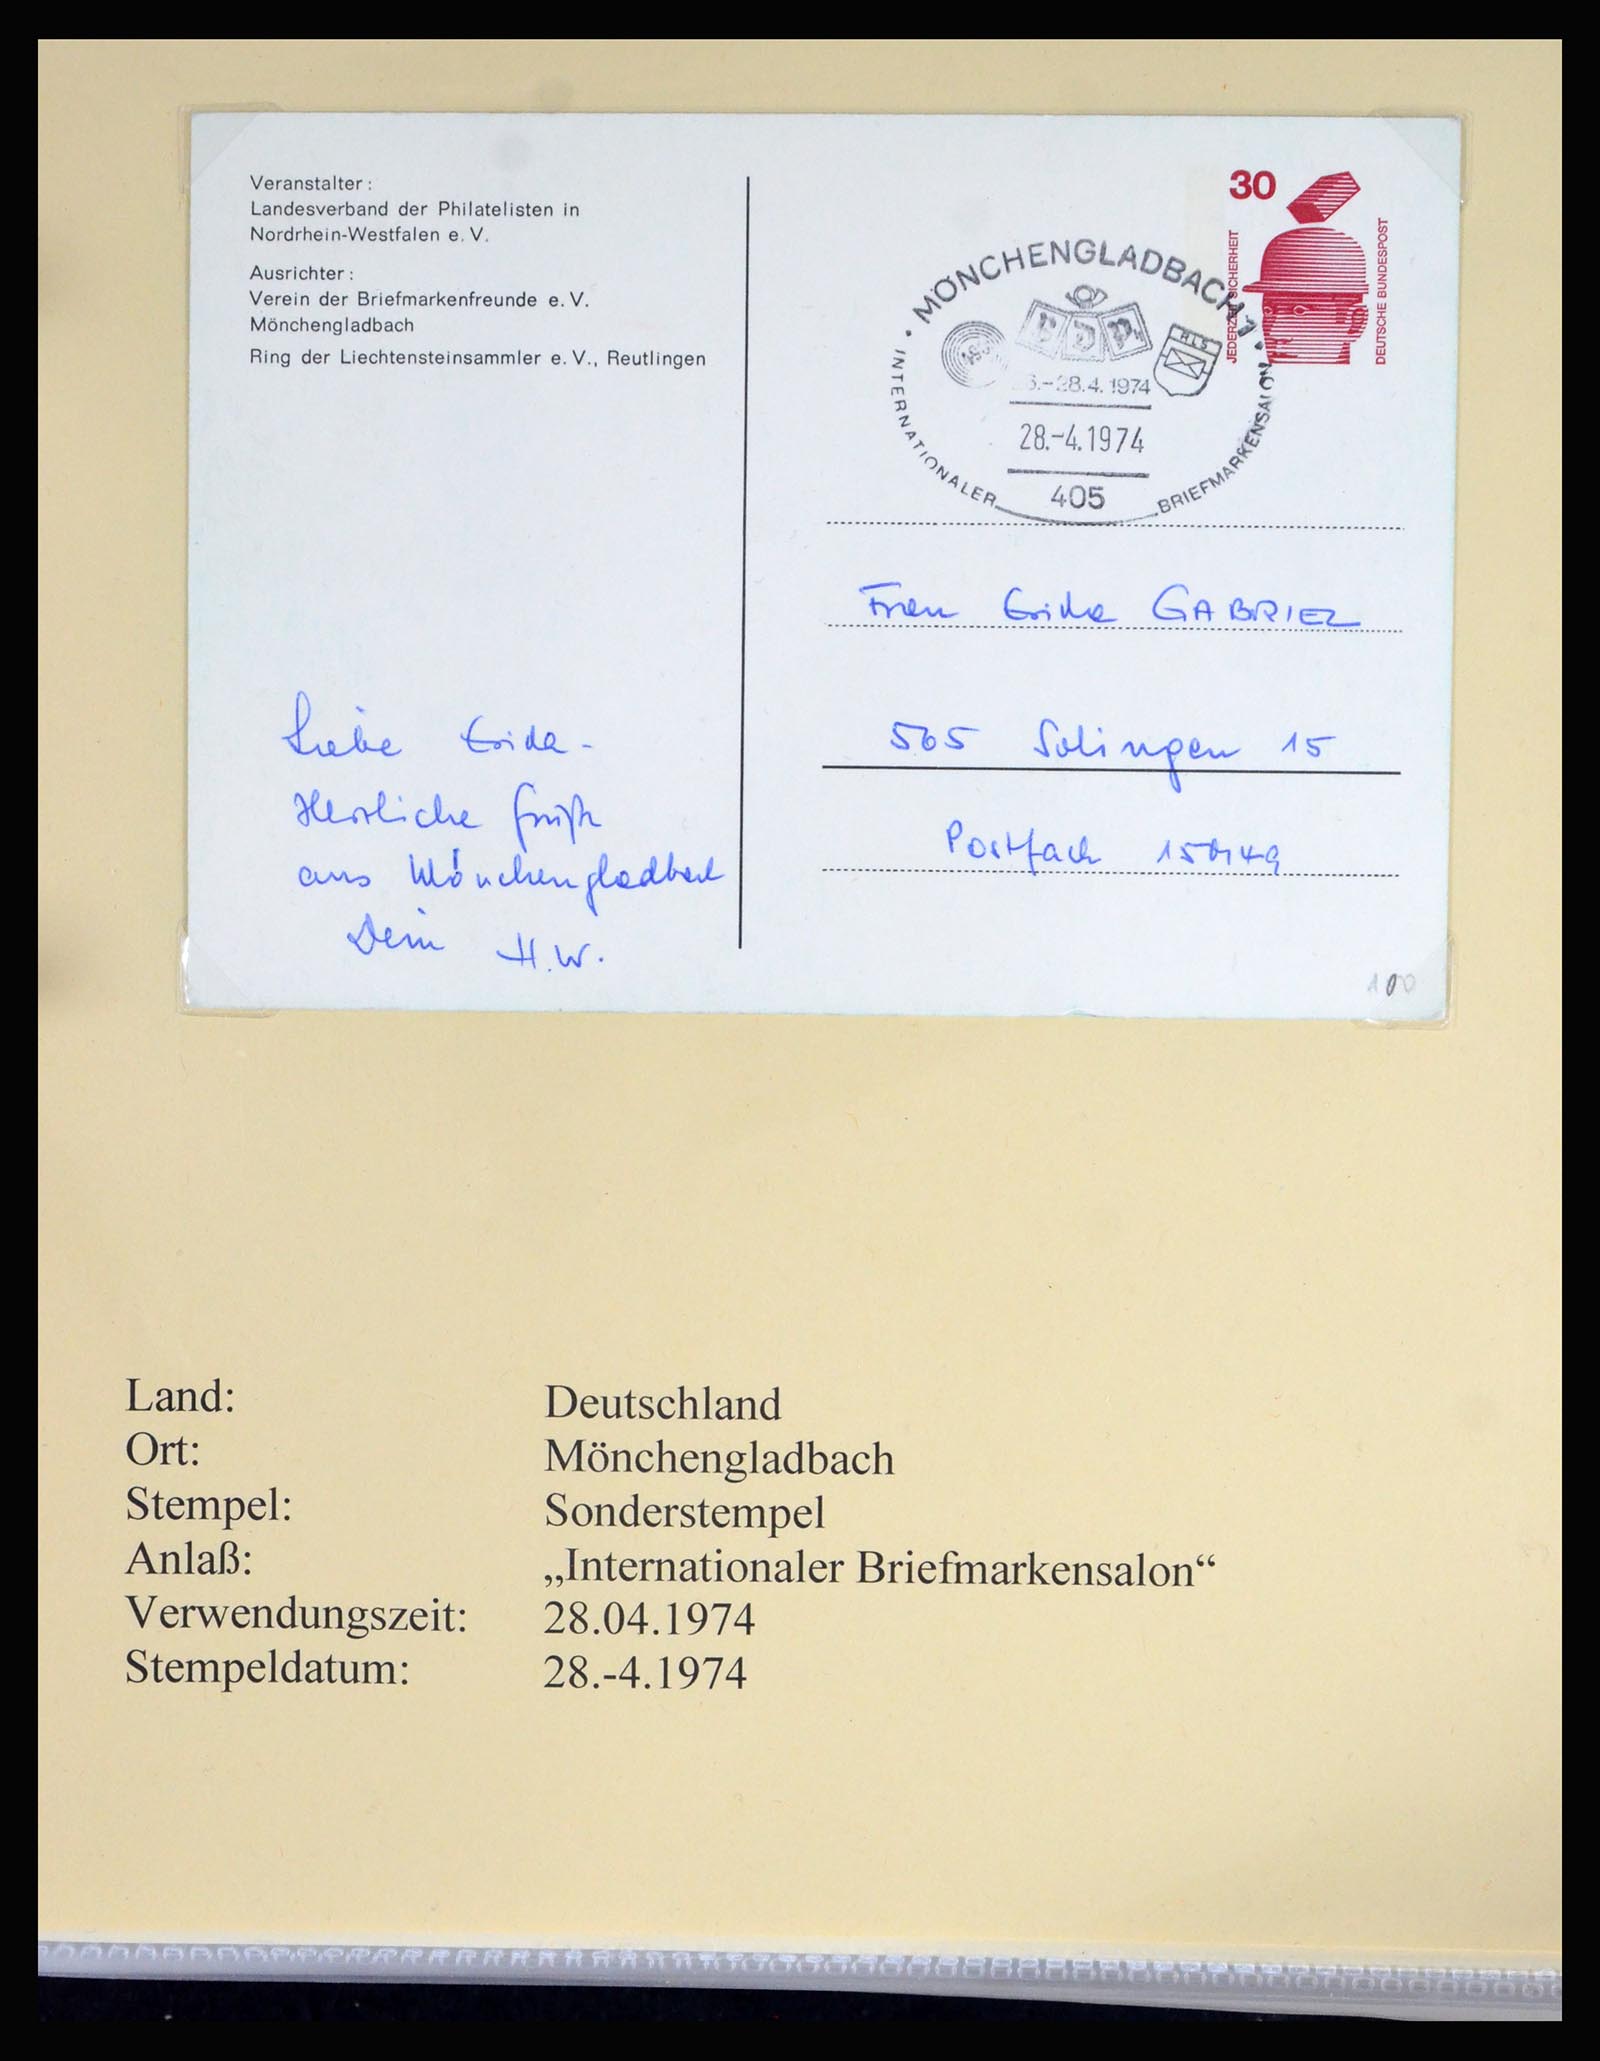 Veranstalter:
Landesverband der Philatelisten in
Nordrhein-Westfalen e. V.
Ausrichter:
Verein der Briefmarkenfreunde e. V.
Mönchengladbach
Ring der Liechtensteinsammler e. V., Reutlingen
30
JEDERZEIT SICHERHEIT
DEUTSCHE BUNDESPOST
MÖNCHENGLADBACH 1
RLS
28.4.1974
28.-4.1974
405
INTERNATIONALER BRIEFMARKENSALON
Frau Erika GABRIEL
565 Solingen 15
Postfach
Liebe Erika -
Herzliche Grüße
aus Mönchengladbach
Dein H.W.
100
Land: Deutschland
Ort: Mönchengladbach
Stempel: Sonderstempel
Anlaß: „Internationaler Briefmarkensalon“
Verwendungszeit: 28.04.1974
Stempeldatum: 28.-4.1974